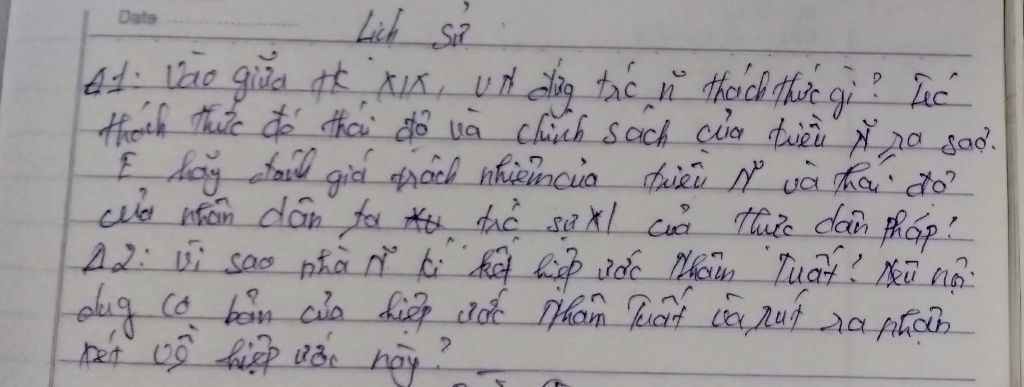 Date
Lịch Sử
Q1: Vào giữa tk XIX, VN đứg trc n̄ thách thức gì? Trc
thách thức đó thái độ và chính sách của triều N̄ ra sao?
E hãy đánh giá trách nhiệm của triều N̄ và thái độ
của nhân dân ta trc sự XL của thực dân Pháp?
Q2: Vì sao nhà N̄ kí kết hiệp ước Nhâm Tuất? Nêu nội
dug cơ bản của hiệp ước Nhâm Tuất và rút ra nhận
xét về hiệp ước này?